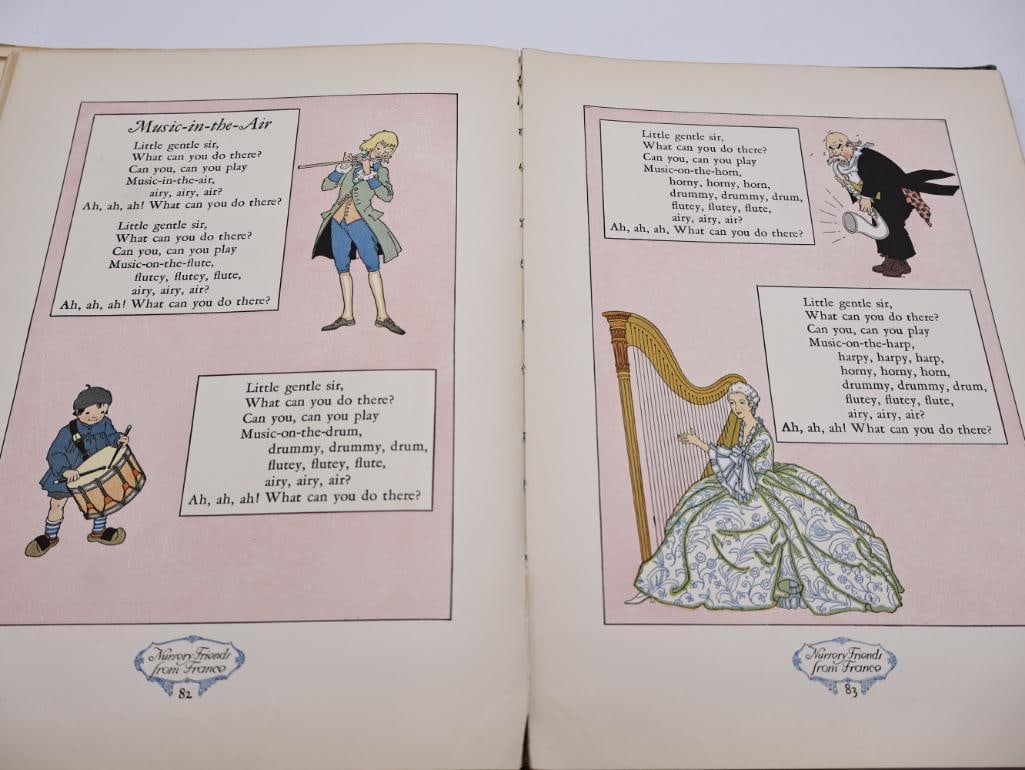 Music-in-the-Air
Little gentle sir,
What can you do there?
Can you, can you play
Music-in-the-air,
airy, airy, air?
Ah, ah, ah! What can you do there?
Little gentle sir,
What can you do there?
Can you, can you play
Music-on-the-flute,
flutey, flutey, flute,
airy, airy, air?
Ah, ah, ah! What can you do there?
Little gentle sir,
What can you do there?
Can you, can you play
Music-on-the-drum,
drummy, drummy, drum,
flutey, flutey, flute,
airy, airy, air?
Ah, ah, ah! What can you do there?
Nursery Friends
from France
82
Little gentle sir,
What can you do there?
Can you, can you play
Music-on-the-horn,
horny, horny, horn,
drummy, drummy, drum,
flutey, flutey, flute,
airy, airy, air?
Ah, ah, ah, What can you do there?
Little gentle sir,
What can you do there?
Can you, can you play
Music-on-the-harp,
harpy, harpy, harp,
horny, horny, horn,
drummy, drummy, drum,
flutey, flutey, flute,
airy, airy, air?
Ah, ah, ah! What can you do there?
Nursery Friends
from France
83